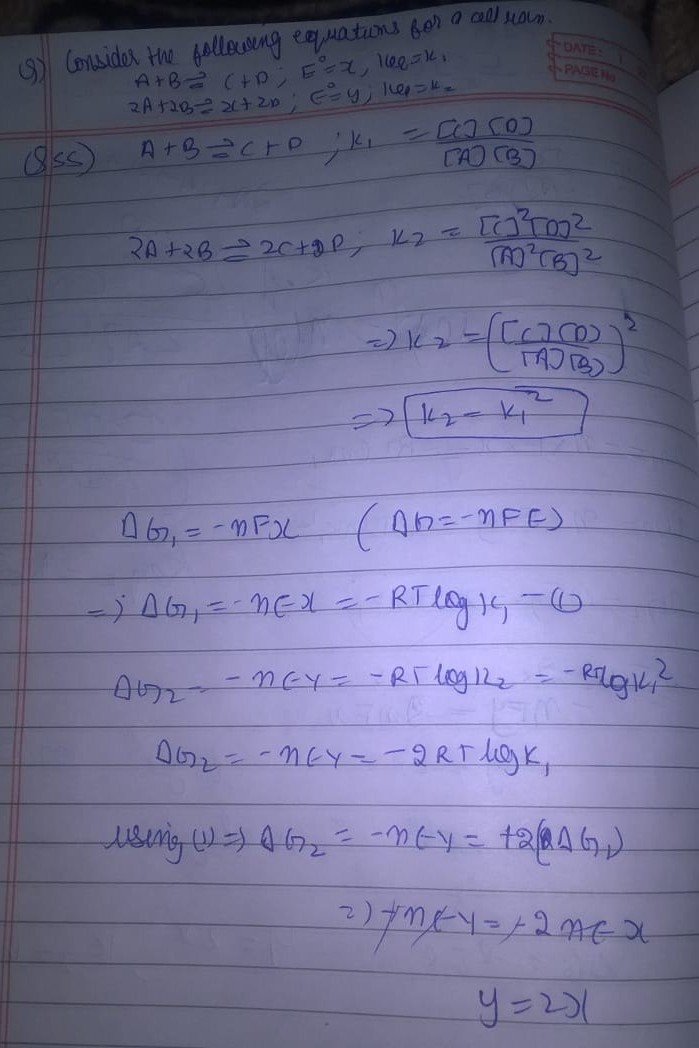 Q) Consider the following equations for a cell rxn.
A+B ⇌ C+D ; E°=x, Keq=K₁
2A+2B ⇌ 2C+2D ; E°=y ; Keq=K₂
DATE:
PAGE No
A+B ⇌ C+D ; K₁ = [C][D] / [A][B]
2A+2B ⇌ 2C+2D ; K₂ = [C]²[D]² / [A]²[B]²
=> K₂ = ([C][D] / [A][B])²
=> K₂ = K₁²
ΔG₁ = -nFx (ΔG = -nFE)
=> ΔG₁ = -nFx = -RT log K₁ -(1)
ΔG₂ = -nFy = -RT log K₂ = -RT log K₁²
ΔG₂ = -nFy = -2RT log K₁
using (1) => ΔG₂ = -nFy = +2(ΔG₁)
=> -nFy = -2nFx
y = 2x